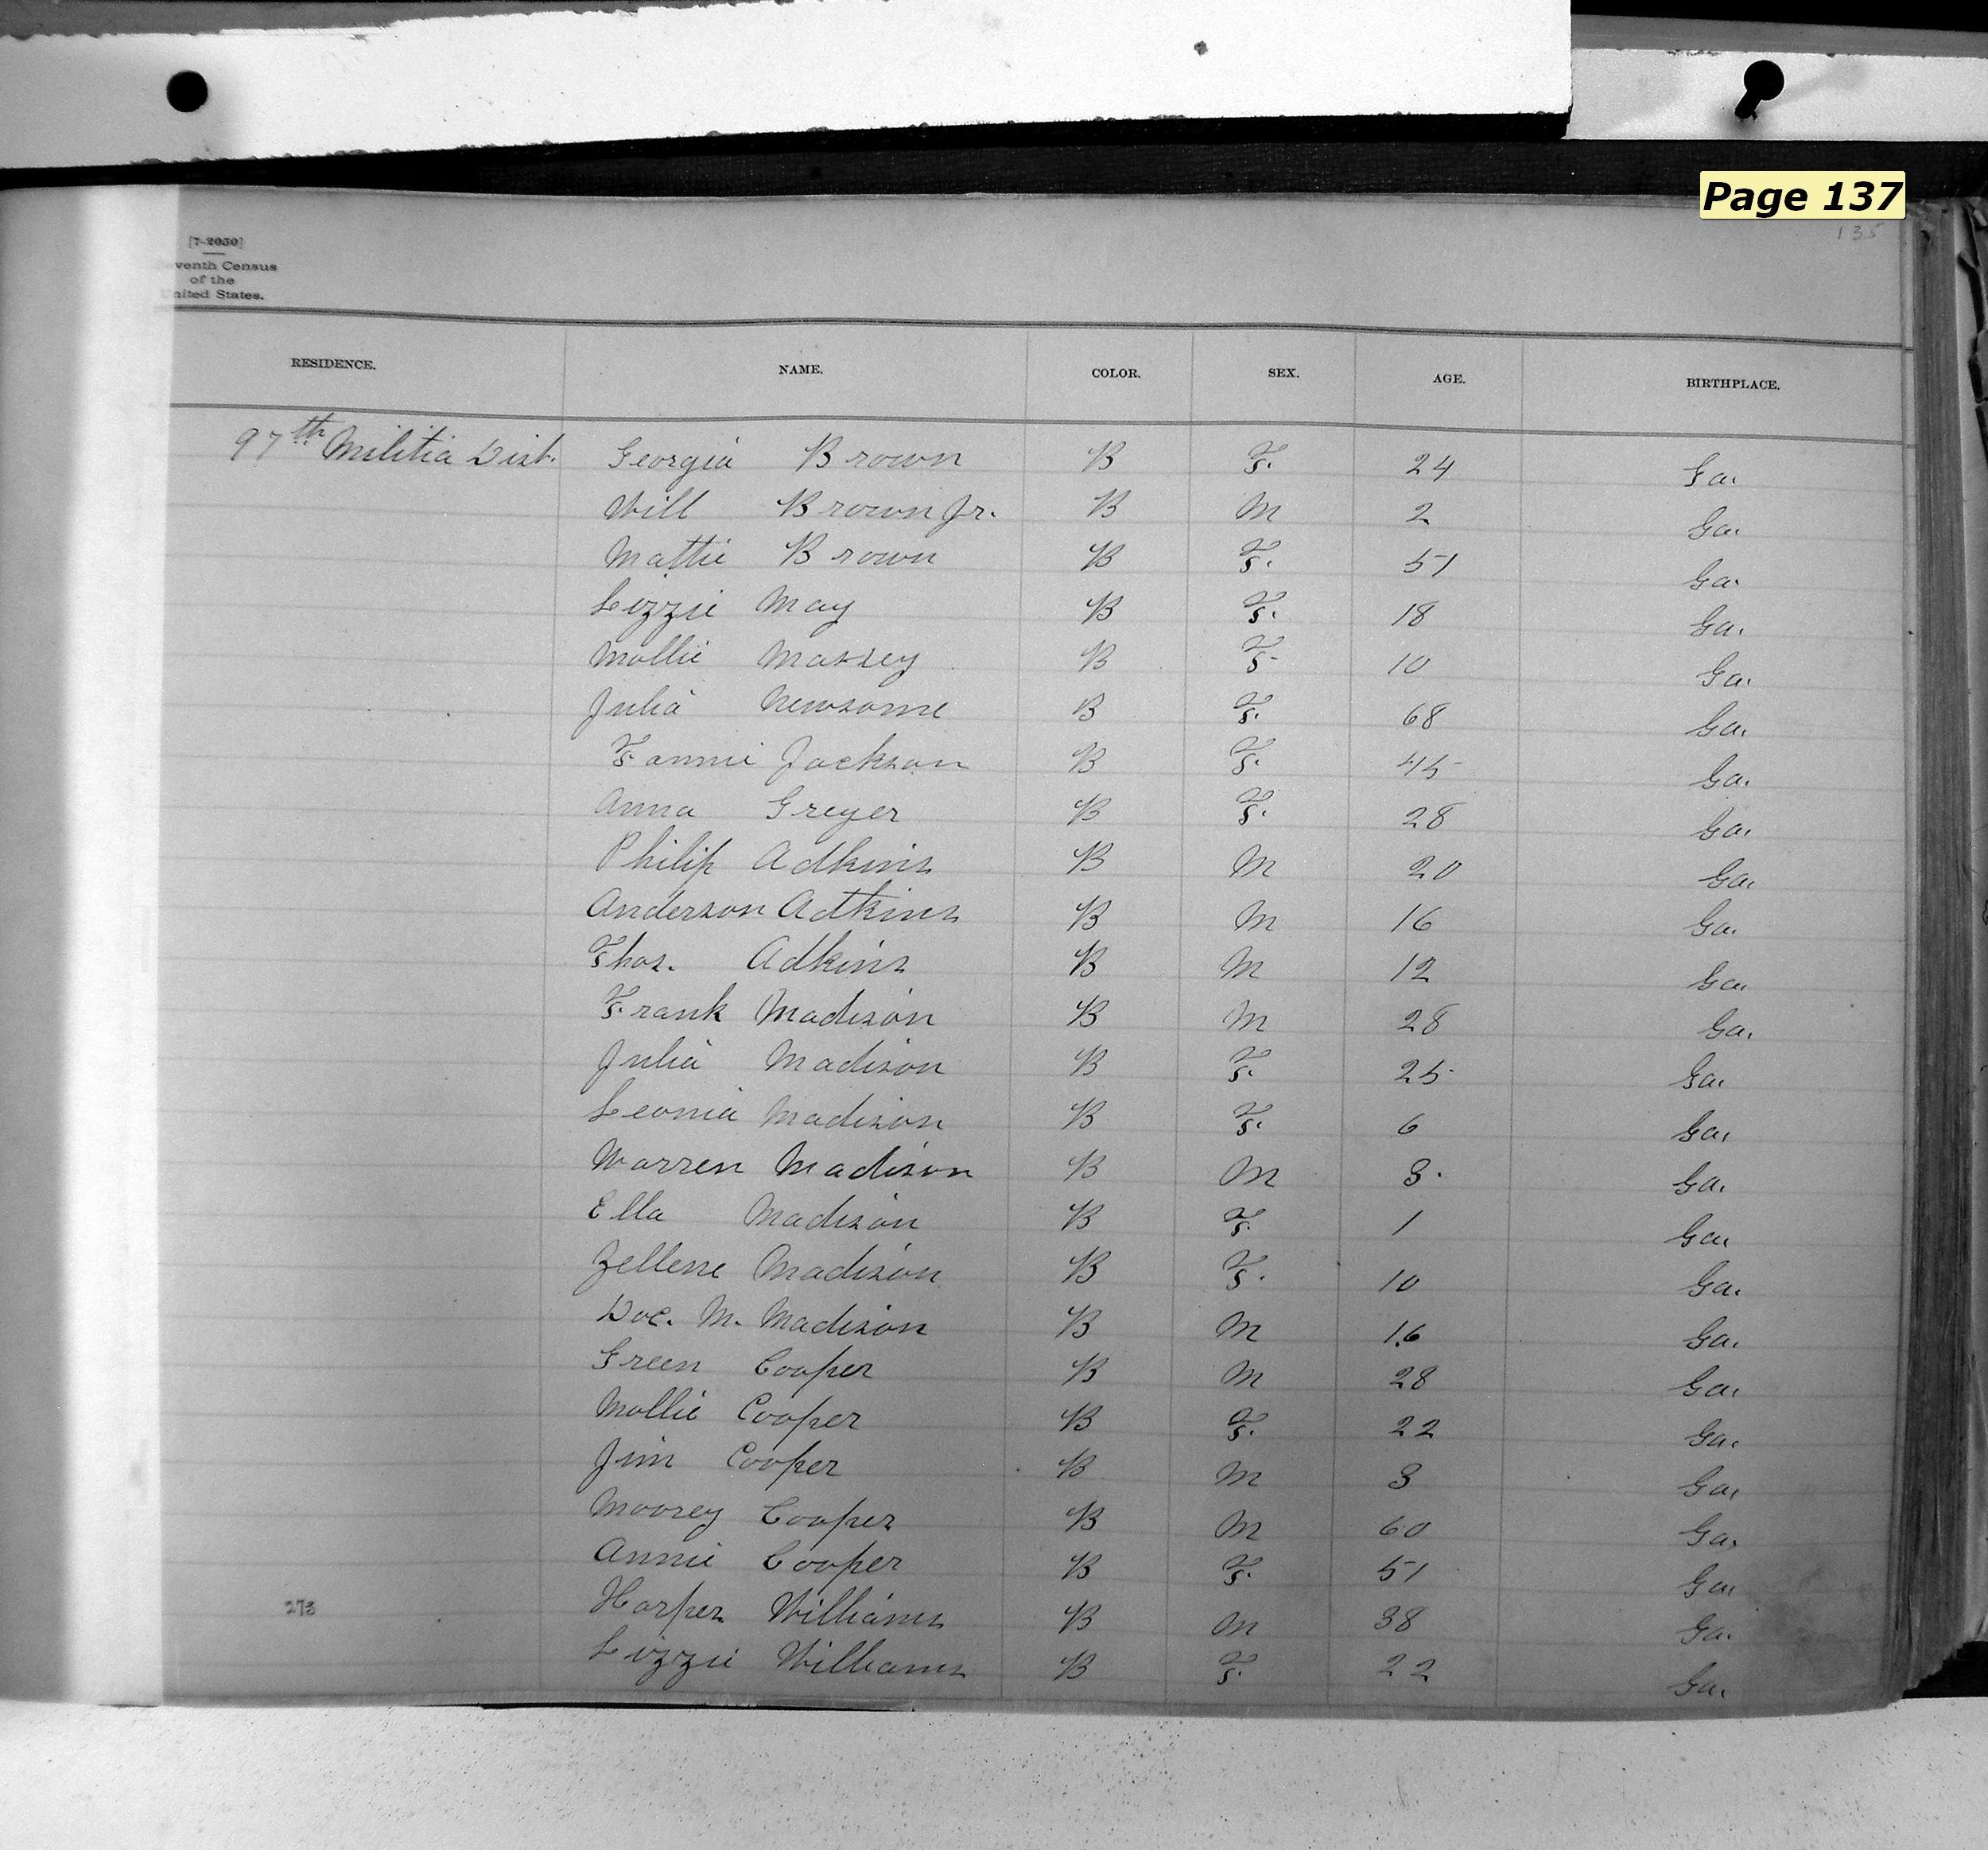 Page 137
135
[7-2050]
eventh Census
of the
nited States.
RESIDENCE. NAME. COLOR. SEX. AGE. BIRTHPLACE.
97th Militia Dist. Georgia Brown B F. 24 Ga.
Will Brown Jr. B M 2 Ga.
Mattie Brown B F. 51 Ga.
Lizzie May B F. 18 Ga.
Mollie Massey B F. 10 Ga.
Julia Newsome B F. 68 Ga.
Fannie Jackson B F. 45 Ga.
Anna Greyer B F. 28 Ga.
Philip Adkins B M 20 Ga.
Anderson Adkins B M 16 Ga.
Thos. Adkins B M 12 Ga.
Frank Madison B M 28 Ga.
Julia Madison B F. 25 Ga.
Leonia Madison B F. 6 Ga.
Warren Madison B M 3. Ga.
Ella Madison B F. 1 Ga.
Zellene Madison B F. 10 Ga.
Doc. M. Madison B M 16 Ga.
Green Cooper B M 28 Ga.
Mollie Cooper B F. 22 Ga.
Jim Cooper B M 3 Ga.
Moorey Cooper B M 60 Ga.
Annie Cooper B F. 51 Ga.
273 Harper Williams B M 38 Ga.
Lizzie Williams B F. 22 Ga.